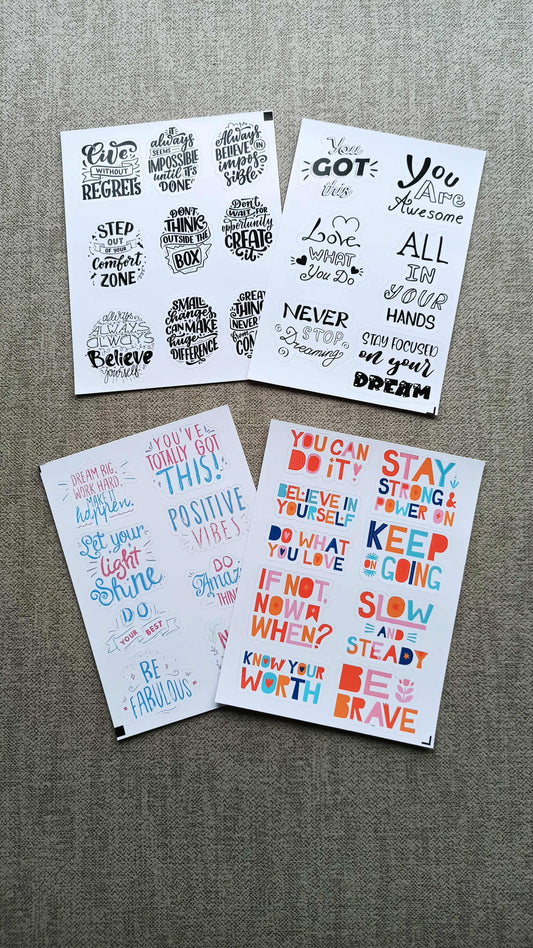 Live
WITHOUT
REGRETS
IT
always
SEEMS
IMPOSSIBLE
until it's
DONE
Always
BELIEVE IN
impos
sible
STEP
OUT
OF YOUR
Comfort
ZONE
DON'T
THINK
OUTSIDE THE
BOX
Don't
WAIT FOR
opportunity
CREATE
it
always
ALWAYS
always
Believe
yourself
SMALL
CHANGES
CAN MAKE
huge
DIFFERENCE
GREAT
THING
NEVER
You
GOT
this
You
Are
Awesome
Love
WHAT
You Do
ALL
IN
YOUR
HANDS
NEVER
STOP
Dreaming
STAY FOCUSED
on your
DREAM
DREAM BIG,
WORK HARD,
MAKE IT
happen.
YOU'VE
TOTALLY GOT
THIS!
Let your
light
Shine
POSITIVE
VIBES
DO
YOUR BEST
DO
Amaz
THIN
BE
FABULOUS
YOU CAN
DO iT!
STAY
STRONG &
POWER ON
BELIEVE IN
YOURSELF
DO WHAT
YOU LOVE
KEEP
ON GOING
IF NOT,
NOW
WHEN?
SLOW
AND
STEADY
KNOW YOUR
WORTH
BE
BRAVE